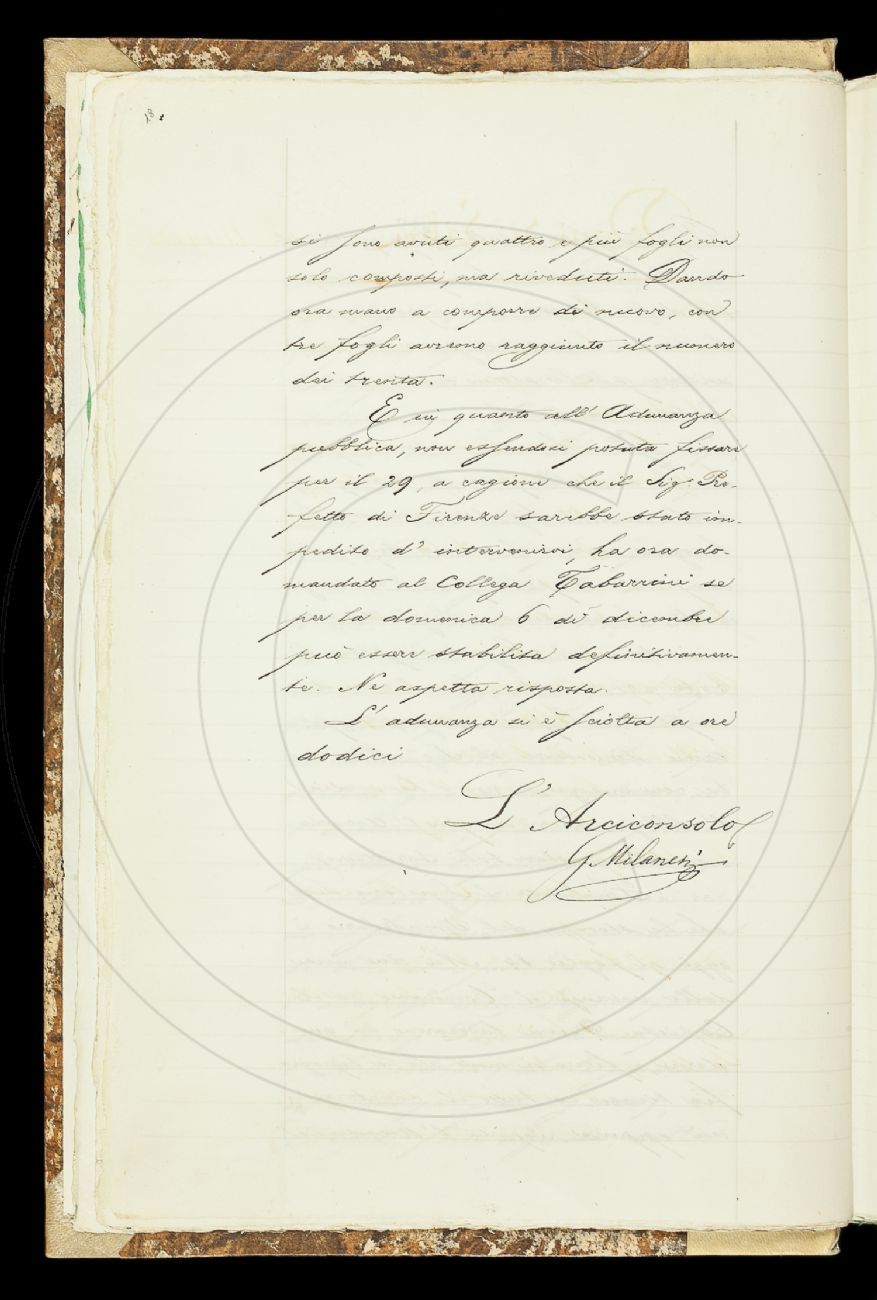 18.
si sono avuti quattro e più fogli non
solo composti, ma riveduti. Dando
ora mano a comporre di nuovo, con
tre fogli avremo raggiunto il numero
dei trenta.
E in quanto all' Adunanza
pubblica, non essendosi potuta fissare
per il 29, a cagione che il Sig. Pre-
fetto di Firenze sarebbe stato im-
pedito d' intervenirvi, ha ora do-
mandato al Collega Tabarrini se
per la domenica 6 di dicembre
può essere stabilita definitivamen-
te. Ne aspetta risposta.
L' adunanza si è sciolta a ore
dodici
L' Arciconsolo
G Milanesi